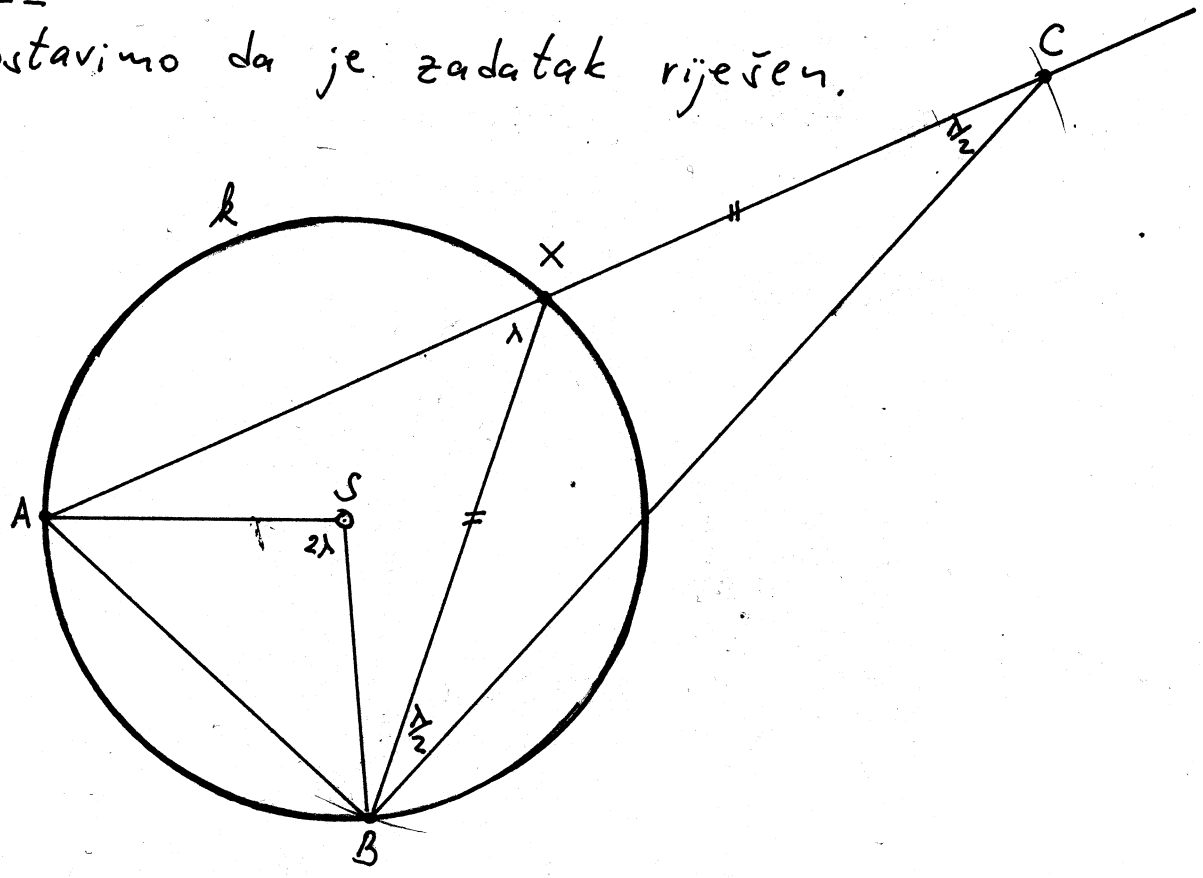 ostavimo da je zadatak riješen.
C
λ/2
k
X
λ
A
S
2λ
λ/2
B